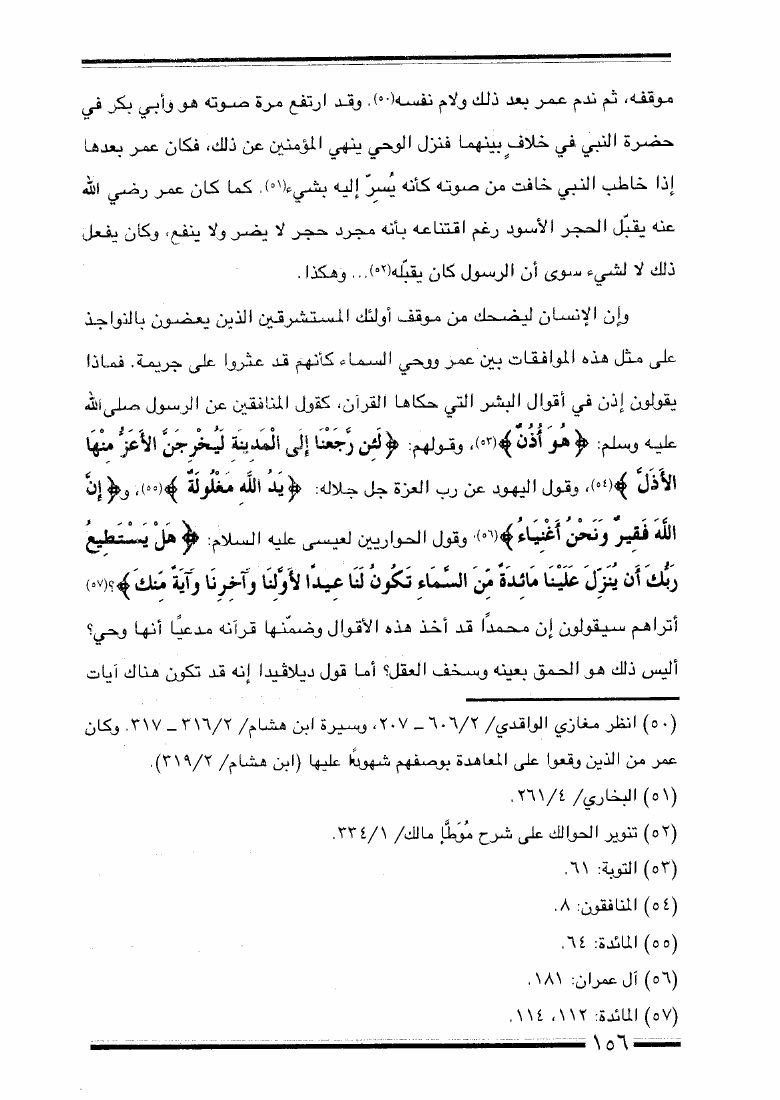 موقفه، ثم ندم عمر بعد ذلك ولام نفسه(٥٠). وقد ارتفع مرة صوته هو وأبي بكر في
حضرة النبي في خلافٍ بينهما فنزل الوحي ينهي المؤمنين عن ذلك، فكان عمر بعدها
إذا خاطب النبي خافت من صوته كأنه يُسرّ إليه بشيء(٥١). كما كان عمر رضي الله
عنه يقبّل الحجر الأسود رغم اقتناعه بأنه مجرد حجر لا يضر ولا ينفع، وكان يفعل
ذلك لا لشيء سوى أن الرسول كان يقبّله(٥٢)... وهكذا.
وإن الإنسان ليضحك من موقف أولئك المستشرقين الذين يعضون بالنواجذ
على مثل هذه الموافقات بين عمر ووحي السماء كأنهم قد عثروا على جريمة. فماذا
يقولون إذن في أقوال البشر التي حكاها القرآن، كقول المنافقين عن الرسول صلى الله
عليه وسلم: ﴿هُوَ أُذُنٌ﴾(٥٣)، وقولهم: ﴿لَئِن رَّجَعْنَا إِلَى الْمَدِينَةِ لَيُخْرِجَنَّ الأَعَزُّ مِنْهَا
الأَذَلَّ﴾(٥٤)، وقول اليهود عن رب العزة جل جلاله: ﴿يَدُ اللَّهِ مَغْلُولَةٌ﴾(٥٥)، و﴿إِنَّ
اللَّهَ فَقِيرٌ وَنَحْنُ أَغْنِيَاءُ﴾(٥٦) وقول الحواريين لعيسى عليه السلام: ﴿هَلْ يَسْتَطِيعُ
رَبُّكَ أَن يُنَزِّلَ عَلَيْنَا مَائِدَةً مِّنَ السَّمَاءِ تَكُونُ لَنَا عِيدًا لأَوَّلِنَا وَآخِرِنَا وَآيَةً مِّنكَ﴾؟(٥٧)
أتراهم سيقولون إن محمدًا قد أخذ هذه الأقوال وضمّنها قرآنه مدعيًا أنها وحي؟
أليس ذلك هو الحمق بعينه وسخف العقل؟ أما قول ديلاڤيدا إنه قد تكون هناك آيات
(٥٠) انظر مغازي الواقدي/ ٦٠٦/٢ ــ ٢٠٧، وسيرة ابن هشام/ ٣١٦/٢ ــ ٣١٧. وكان
عمر من الذين وقعوا على المعاهدة بوصفهم شهودًا عليها (ابن هشام/ ٣١٩/٢).
(٥١) البخاري/ ٢٦١/٤.
(٥٢) تنوير الحوالك على شرح مُوَطَّإِ مالك/ ٣٣٤/١.
(٥٣) التوبة: ٦١.
(٥٤) المنافقون: ٨.
(٥٥) المائدة: ٦٤.
(٥٦) آل عمران: ١٨١.
(٥٧) المائدة: ١١٢، ١١٤.
١٥٦